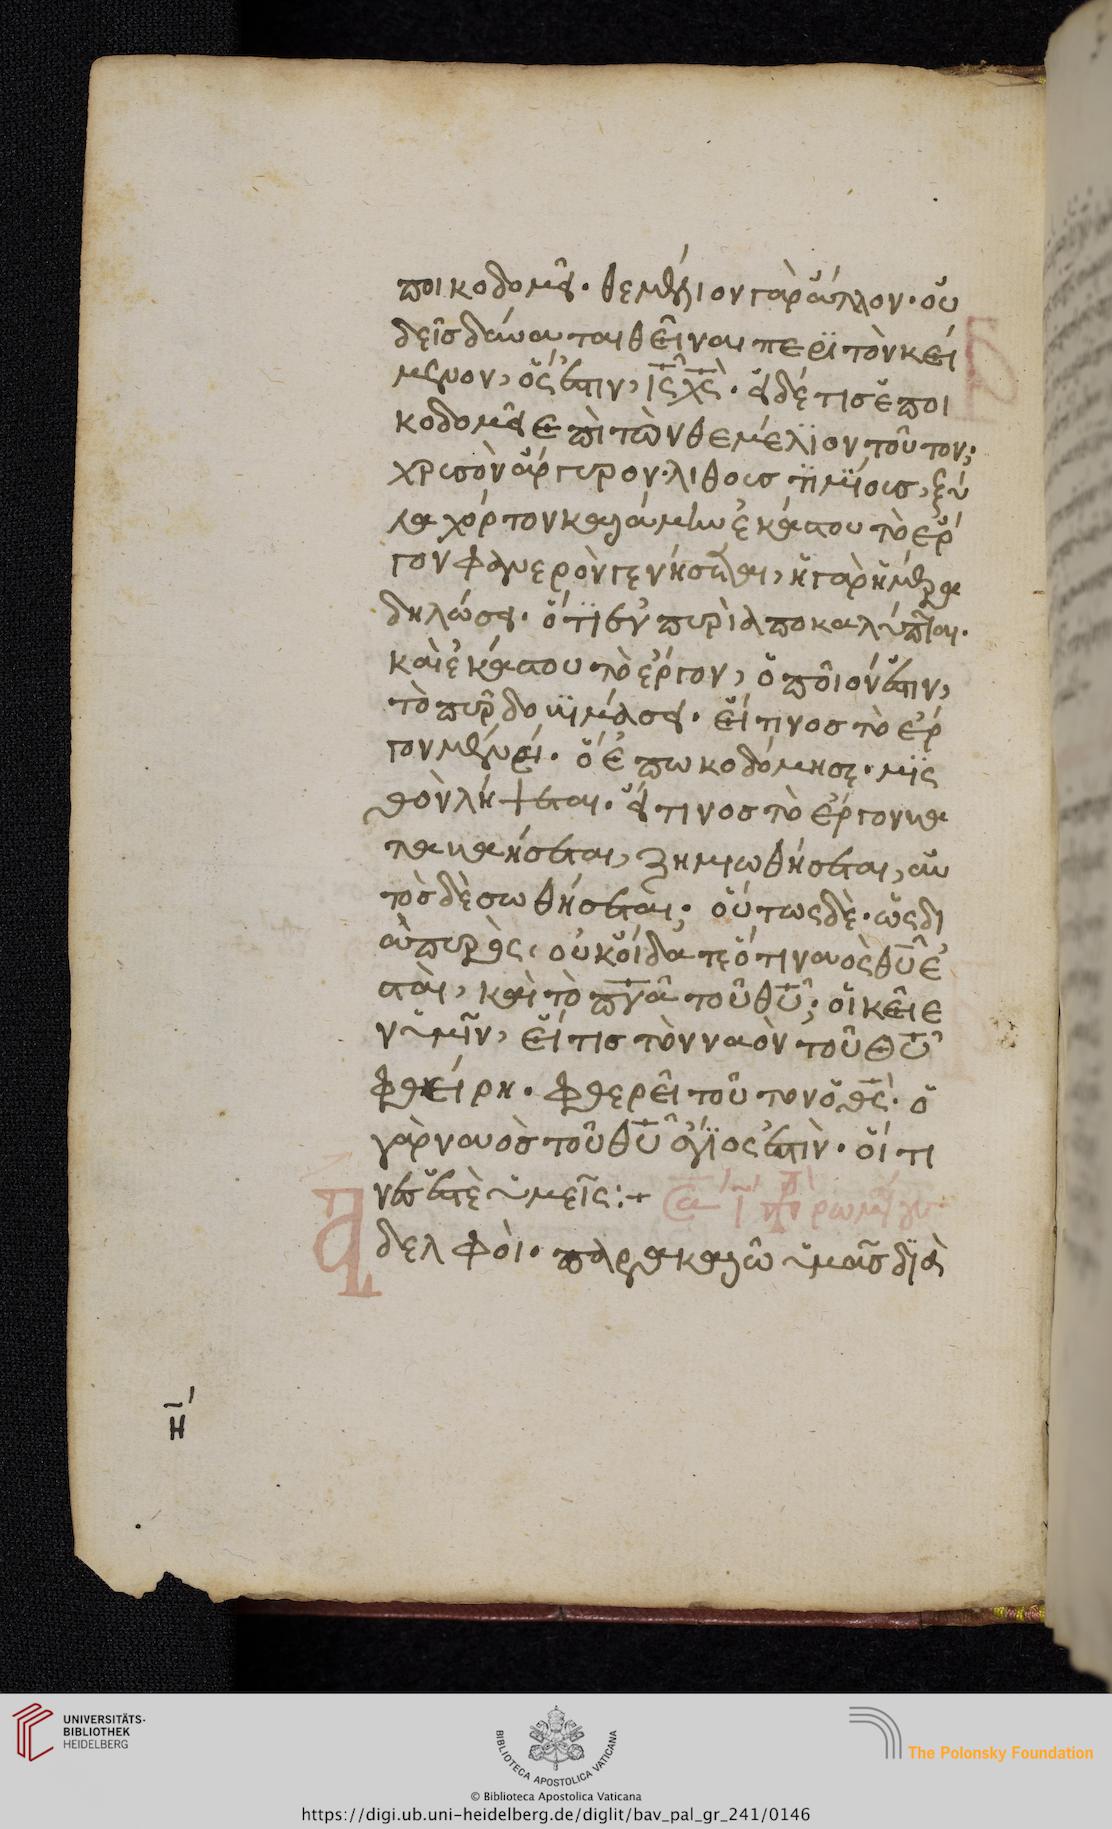 ποικοδομεῖ· θεμέλιον γὰρ ἄλλον· οὐ
δεῖς δύναται θεῖναι περὶ τὸν κεί
μενον, ὅς ἐστιν, ις̅ χς̅· εἰ δέ τις ἐποι
κοδομεῖ ἐπὶ τὼν θεμέλϊον τοῦτον;
χρυσὸν ἄργυρον· λίθοις τϊμΐοις, ξύ
λα χόρτον καλάμην ἑκάστου τὸ ἔρ
γον φανερὸν γενήσεται, ἡ γὰρ ἡμέρα
δηλώσει· ὅτϊ ἐν πυρὶ ἀποκαλύπτεται·
καὶ ἑκάστου τὸ ἔργον, ὁποῖον ἐστιν,
τὸ πῦρ δοκϊμάσει· εἴ τινος τὸ ἔρ
γον μένει· ὃ ἐπωκοδόμησε· μϊσ
θὸν λήψεται· εἴ τινος τὸ ἔργον κα
τακαήσεται, ζημιωθήσεται, αὐ
τὸς δὲ σωθήσεται; οὕτως δὲ· ὡς δι
ὰ πυρὸς, οὐκ οἴδατε ὅτι ναὸς θυ̅ ἐ
στὲ, καὶ τὸ πνα̅ τοῦ θυ̅; οἰκεῖ ε
ν ὑμῖν, εἴ τις τὸν ναὸν τοῦ θυ̅
φθείρη· φθερεῖ τοῦτον ὁ θς̅· ὁ
γὰρ ναὸς τοῦ θυ̅ ἅγϊος ἐστὶν· οἵ τι
νες ἐστὲ ὑμεῖς:+
Ἀδελφοὶ· παρακαλῶ ὑμᾶς δϊὰ
η̅ʹ
UNIVERSITÄTS-
BIBLIOTHEK
HEIDELBERG
BIBLIOTECA APOSTOLICA VATICANA
The Polonsky Foundation
© Biblioteca Apostolica Vaticana
https://digi.ub.uni-heidelberg.de/diglit/bav_pal_gr_241/0146